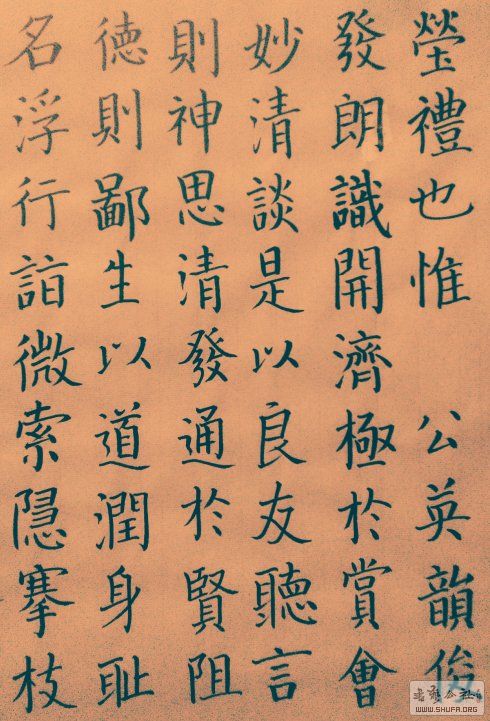 塋禮也惟 公英韻俊
發朗識開濟極於賞會
妙清談是以良友聽言
則神思清發通於賢阻
德則鄙生以道潤身耻
名浮行詣微索隱搴枝
WWW.SHUFA.ORG